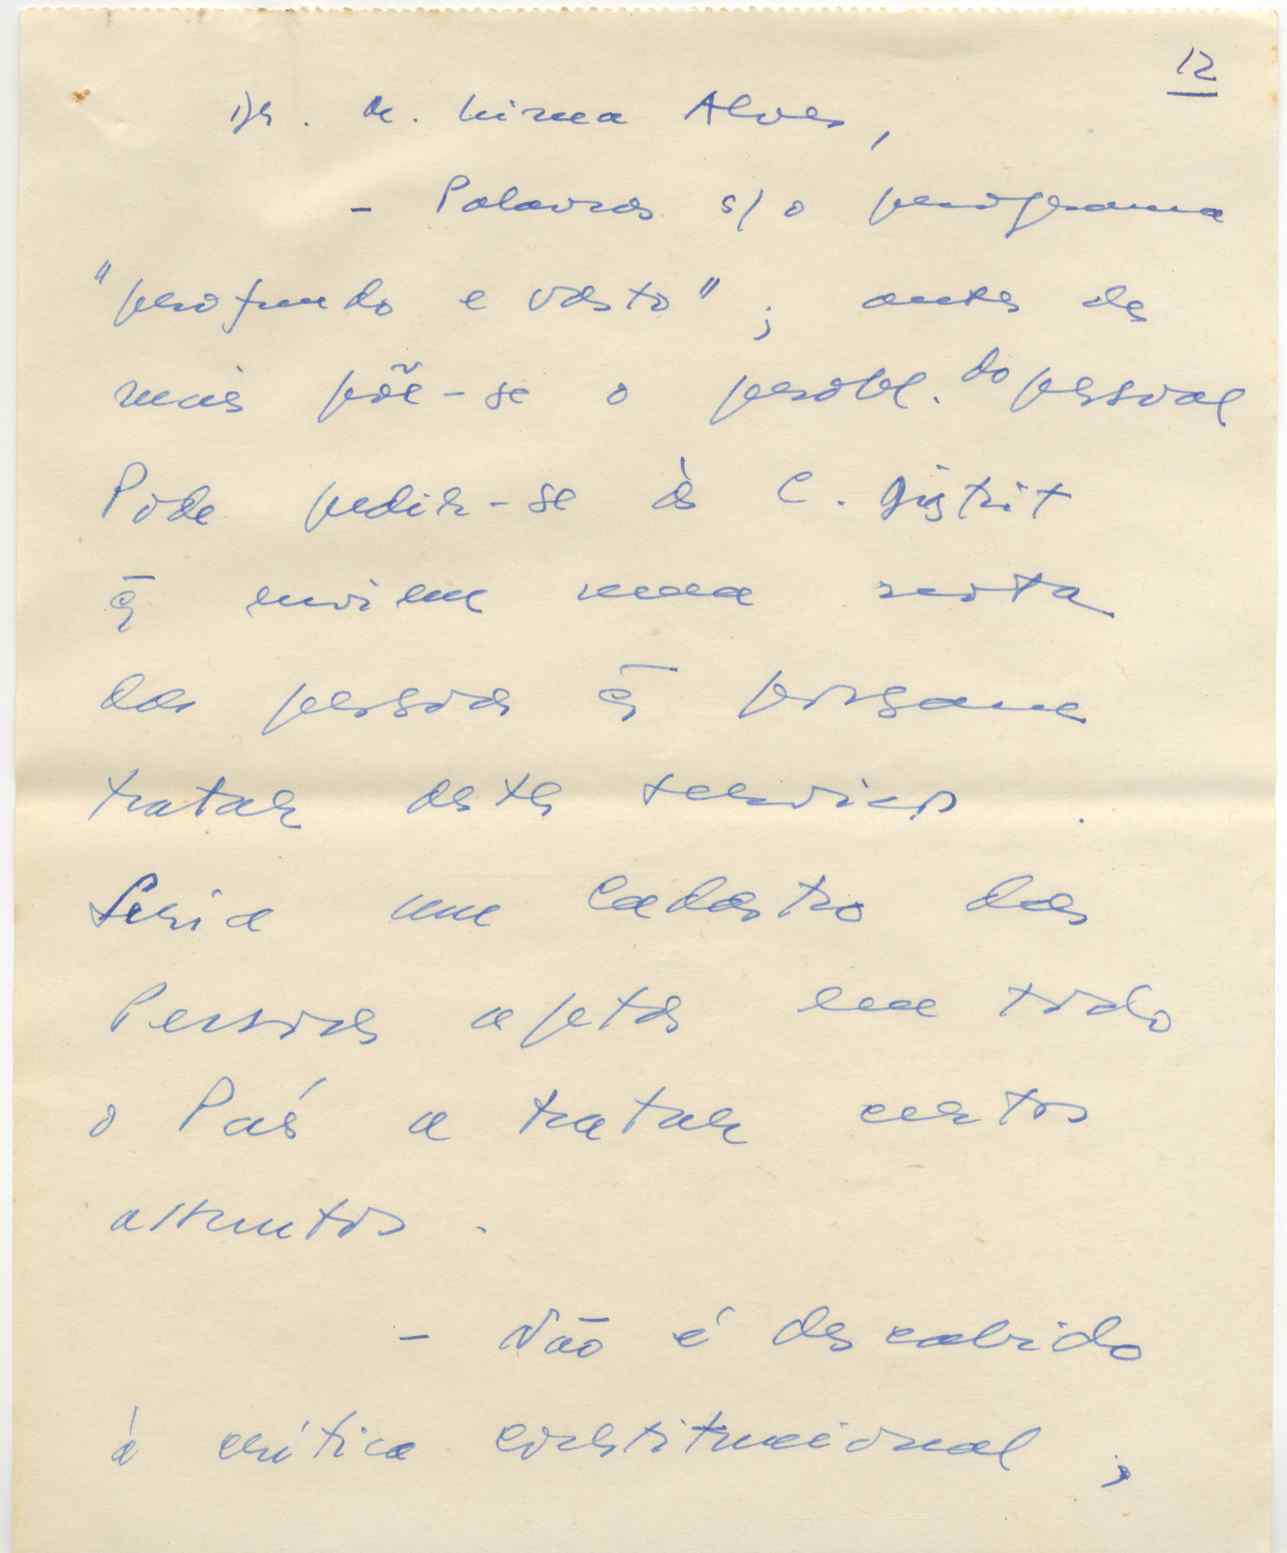 12
Dr. M. Lima Alves,
- Palavras s/ o programa
"profundo e vasto"; antes de
mais põe-se o probl. do pessoal
Pode pedir-se às C. Distrit
q̄ enviem uma nota
das pessoas q̄ possam
tratar destes serviços.
Seria um Cadastro das
Pessoas aptas em todo
o País a tratar certos
assuntos.
- Não é descabido
a crítica constitucional,